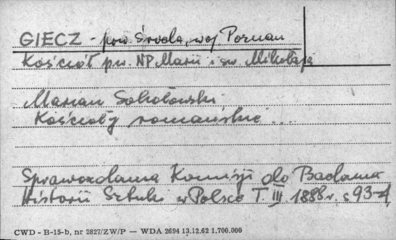 GIECZ - pow. Środa, woj Poznań
Kościół p.w. NP Marii i św. Mikołaja
Marian Sokołowski
Kościoły romańskie ...
Sprawozdania Komisji do Badania
Historii Sztuki w Polsce T. III. 1888 r. s 93-
CWD - B-15-b, nr 2827/ZW/P — WDA 2694 13.12.62 1.700.000